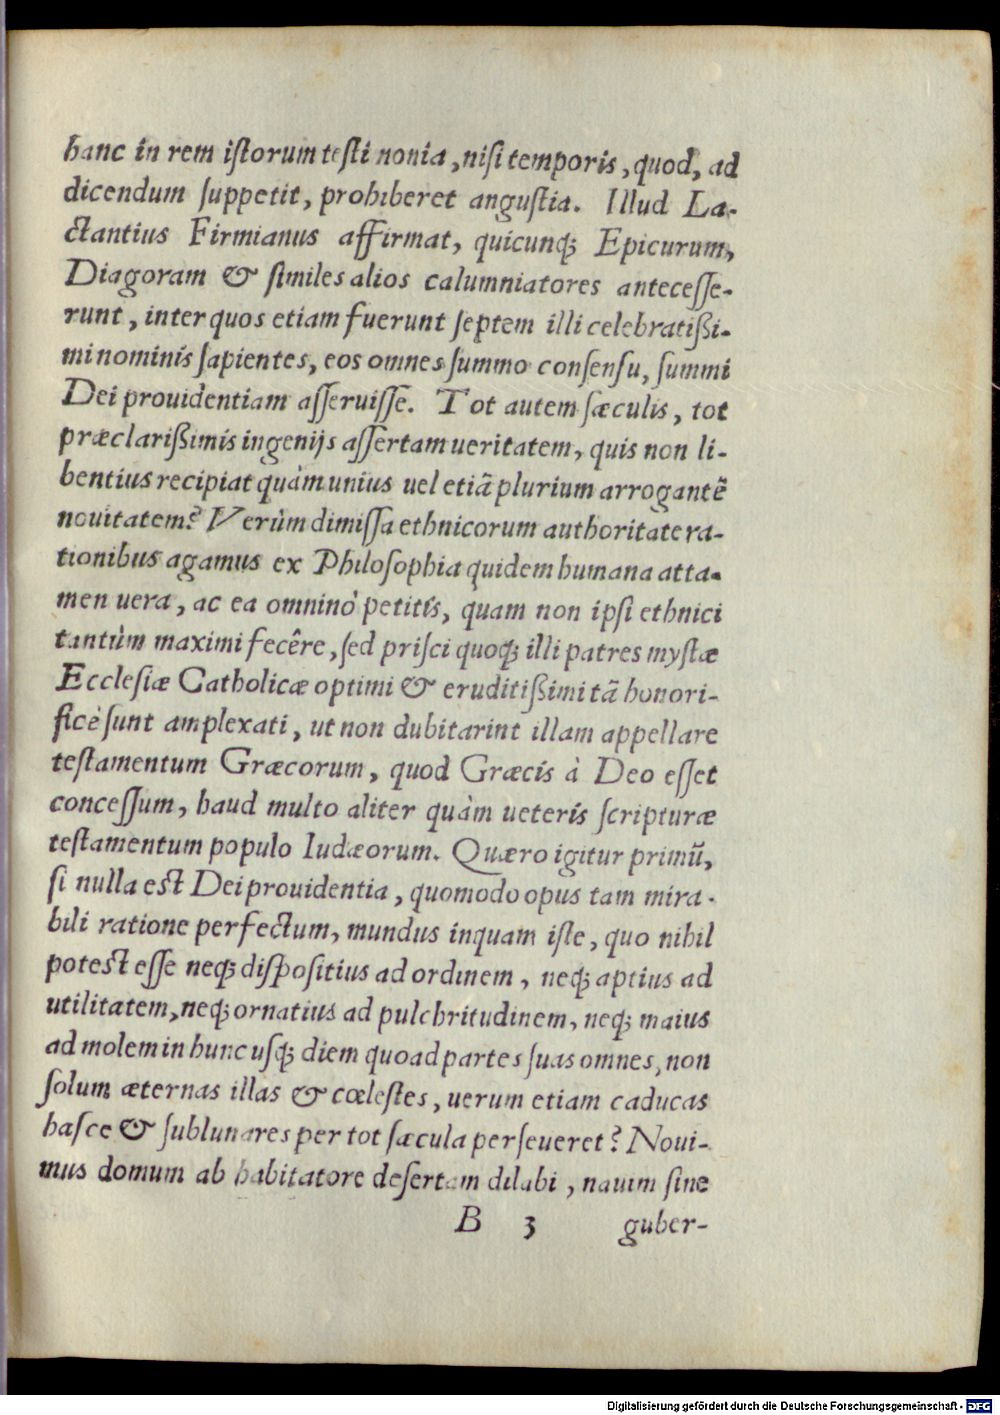 hanc in rem iſtorum teſtimonia, niſi temporis, quod, ad
dicendum ſuppetit, prohiberet anguſtia. Illud La-
ctantius Firmianus affirmat, quicunq; Epicurum,
Diagoram & ſimiles alios calumniatores anteceſſe-
runt, inter quos etiam fuerunt ſeptem illi celebratißi-
mi nominis ſapientes, eos omnes ſummo conſenſu, ſummi
Dei prouidentiam aſſeruiſſe. Tot autem ſæculis, tot
præclarißimis ingenijs aſſertam ueritatem, quis non li-
bentius recipiat quàm unius uel etiã plurium arrogantẽ
nouitatem? Verùm dimiſſa ethnicorum authoritate ra-
tionibus agamus ex Philoſophia quidem humana atta-
men uera, ac ea omninò petitis, quam non ipſi ethnici
tantùm maximi fecêre, ſed priſci quoq; illi patres myſtæ
Eccleſiæ Catholicæ optimi & eruditißimi tã honori-
ficè ſunt amplexati, ut non dubitarint illam appellare
teſtamentum Græcorum, quod Græcis à Deo eſſet
conceſſum, haud multo aliter quàm ueteris ſcripturæ
teſtamentum populo Iudæorum. Quæro igitur primũ,
ſi nulla est Dei prouidentia, quomodo opus tam mira-
bili ratione perfectum, mundus inquam iſte, quo nihil
potest eſſe neq; diſpoſitius ad ordinem, neq; aptius ad
utilitatem, neq; ornatius ad pulchritudinem, neq; maius
ad molem in hunc uſq; diem quoad partes ſuas omnes, non
ſolum æternas illas & cœleſtes, uerum etiam caducas
haſce & ſublunares per tot ſæcula perſeueret? Noui-
mus domum ab habitatore deſertam dilabi, nauim ſine
B 3 guber-
Digitalisierung gefördert durch die Deutsche Forschungsgemeinschaft - DFG